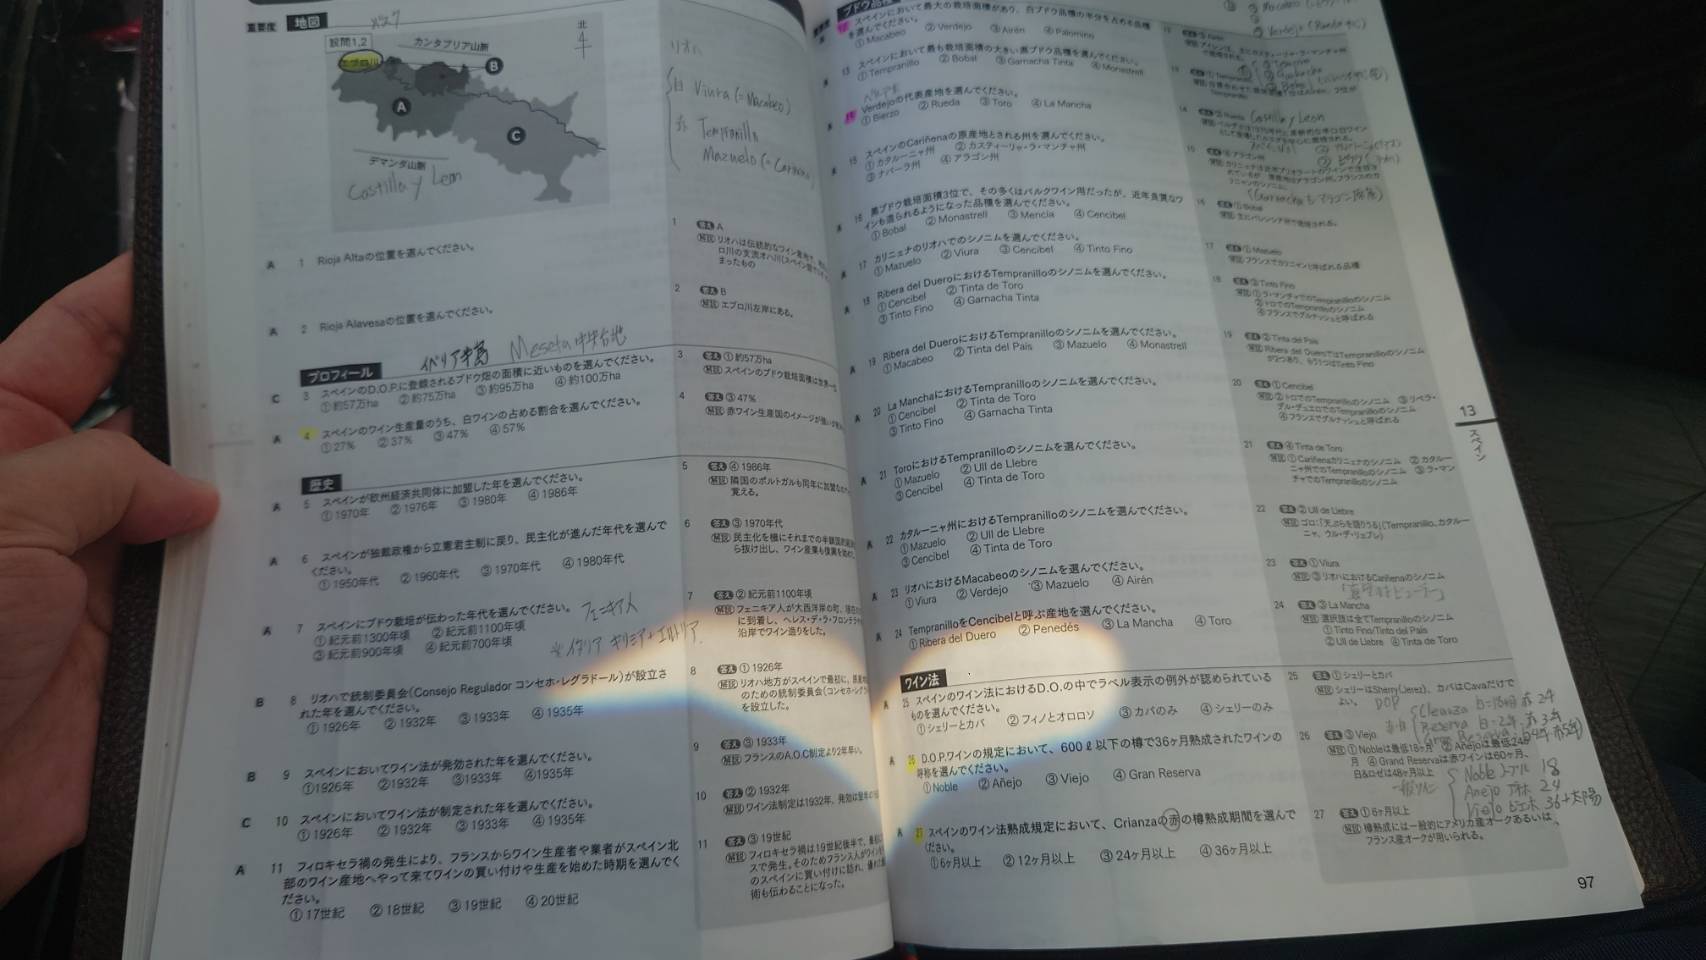 重要度 地図
設問1,2
カンタブリア山脈
北
エブロ川
B
A
C
デマンダ山脈
Castilla y Leon
リオハ
白 Viura (= Macabeo)
赤 Tempranillo
A 1 Rioja Altaの位置を選んでください。
A 2 Rioja Alavesaの位置を選んでください。
1 答え A
2 答え B
解説 エブロ川左岸にある。
Meseta 中央台地
プロフィール
C 3 スペインのD.O.P.に登録されるブドウ畑の面積に近いものを選んでください。
①約57万ha ②約75万ha ③約95万ha ④約100万ha
A 4 スペインのワイン生産量のうち、白ワインの占める割合を選んでください。
①27% ②37% ③47% ④57%
3 答え ①約57万ha
解説 スペインのブドウ栽培面積は世界一
4 答え ③47%
歴史
A 5 スペインが欧州経済共同体に加盟した年を選んでください。
①1970年 ②1976年 ③1980年 ④1986年
A 6 スペインが独裁政権から立憲君主制に戻り、民主化が進んだ年代を選んで
ください。
①1950年代 ②1960年代 ③1970年代 ④1980年代
A 7 スペインにブドウ栽培が伝わった年代を選んでください。 フェニキア人
①紀元前1300年頃 ②紀元前1100年頃
③紀元前900年頃 ④紀元前700年頃
B 8 リオハで統制委員会（Consejo Regulador コンセホ・レグラドール）が設立さ
れた年を選んでください。
①1926年 ②1932年 ③1933年 ④1935年
B 9 スペインにおいてワイン法が発効された年を選んでください。
①1926年 ②1932年 ③1933年 ④1935年
C 10 スペインにおいてワイン法が制定された年を選んでください。
①1926年 ②1932年 ③1933年 ④1935年
A 11 フィロキセラ禍の発生により、フランスからワイン生産者や業者がスペイン北
部のワイン産地へやって来てワインの買い付けや生産を始めた時期を選んでく
ださい。
①17世紀 ②18世紀 ③19世紀 ④20世紀
5 答え ④1986年
解説 隣国のポルトガルも同年に加盟
覚える。
6 答え ③1970年代
7 答え ②紀元前1100年頃
解説 フェニキア人が大西洋岸の町、
に到着し、ヘレス・デ・ラ・フロンテラ
沿岸でワイン造りをした。
8 答え ①1926年
解説 リオハ地方がスペインで最初に、
のための統制委員会（コンセホ・レグラ
を設立した。
9 答え ③1933年
解説 フランスのA.O.C制定より2年早い。
10 答え ②1932年
11 答え ③19世紀
解説 フィロキセラ禍は19世紀後半で、最初に
スで発生。そのためフランス人が
のスペインに買い付けに訪れ、
術も伝わることになった。
スペインにおいて最大の栽培面積があり、白ブドウ品種の半分を占める品種
を選んでください。
①Macabeo ②Verdejo ③Airén ④Palomino
A 13 スペインにおいて最も栽培面積の大きい黒ブドウ品種を選んでください。
①Tempranillo ②Bobal ③Garnacha Tinta ④Monastrell
A 14 Verdejoの代表産地を選んでください。
①Bierzo ②Rueda ③Toro ④La Mancha
15 スペインのCariñenaの原産地とされる州を選んでください。
①カタルーニャ州 ②カスティーリャ・ラ・マンチャ州
③ナバーラ州 ④アラゴン州
16 黒ブドウ栽培面積3位で、その多くはバルクワイン用だったが、近年良質なワ
インも造られるようになった品種を選んでください。
①Bobal ②Monastrell ③Mencia ④Cencibel
A 17 カリニェナのリオハでのシノニムを選んでください。
①Mazuelo ②Viura ③Cencibel ④Tinto Fino
A 18 Ribera del DueroにおけるTempranilloのシノニムを選んでください。
①Cencibel ②Tinta de Toro
③Tinto Fino ④Garnacha Tinta
A 19 Ribera del DueroにおけるTempranilloのシノニムを選んでください。
①Macabeo ②Tinta del Pais ③Mazuelo ④Monastrell
A 20 La ManchaにおけるTempranilloのシノニムを選んでください。
①Cencibel ②Tinta de Toro
③Tinto Fino ④Garnacha Tinta
A 21 ToroにおけるTempranilloのシノニムを選んでください。
①Mazuelo ②Ull de Llebre
③Cencibel ④Tinta de Toro
A 22 カタルーニャ州におけるTempranilloのシノニムを選んでください。
①Mazuelo ②Ull de Llebre
③Cencibel ④Tinta de Toro
A 23 リオハにおけるMacabeoのシノニムを選んでください。
①Viura ②Verdejo ③Mazuelo ④Airén
A 24 TempranilloをCencibelと呼ぶ産地を選んでください。
①Ribera del Duero ②Penedés ③La Mancha ④Toro
ワイン法
A 25 スペインのワイン法におけるD.O.の中でラベル表示の例外が認められている
ものを選んでください。
①シェリーとカバ ②フィノとオロロソ ③カバのみ ④シェリーのみ
A 26 D.O.P.ワインの規定において、600ℓ以下の樽で36ヶ月熟成されたワインの
呼称を選んでください。
①Noble ②Añejo ③Viejo ④Gran Reserva
A 27 スペインのワイン法熟成規定において、Crianzaの赤の樽熟成期間を選んで
ください。
①6ヶ月以上 ②12ヶ月以上 ③24ヶ月以上 ④36ヶ月以上
Castilla y Leon
15 答え ④アラゴン州
16 答え ①Bobal
17 答え ①Mazuelo
解説 フランスでカリニャンと呼ばれる品種
18 答え ③Tinto Fino
解説 ①ラ・マンチャでのTempranilloのシノニム
②トロでのTempranilloのシノニム
④フランスでグルナッシュと呼ばれる
19 答え ②Tinta del Pais
解説 Ribera del DueroではTempranilloのシノニム
が2つあり、もう1つはTinto Fino
20 答え ①Cencibel
解説 ②トロでのTempranilloのシノニム ③リベラ・
デル・ドュエロでのTempranilloのシノニム
④フランスでグルナッシュと呼ばれる
21 答え ④Tinta de Toro
解説 ①Cariñenaカリニェナのシノニム ②カタルー
ニャ州でのTempranilloのシノニム ③ラ・マン
チャでのTempranilloのシノニム
22 答え ②Ull de Llebre
23 答え ①Viura
解説 ③リオハにおけるCariñenaのシノニム
24 答え ③La Mancha
解説 選択肢は全てTempranilloのシノニム
①Tinto Fino/Tinto del Pais
②Ull de Llebre ④Tinta de Toro
25 答え ①シェリーとカバ
解説 シェリーはSherry(Jerez)、カバはCavaだけで
よい。 DOP
26 答え ③Viejo
解説 ①Nobleは最低18ヶ月 ②Añejoは最低24ヶ
月 ④Grand Reservaは赤ワインは60ヶ月、
白&ロゼは48ヶ月以上
Noble ノーブル 18
Viejo ビエホ 36+太陽
27 答え ①6ヶ月以上
解説 樽熟成には一般的にアメリカ産オークあるいは、
フランス産オークが用いられる。
13
スペイン
97